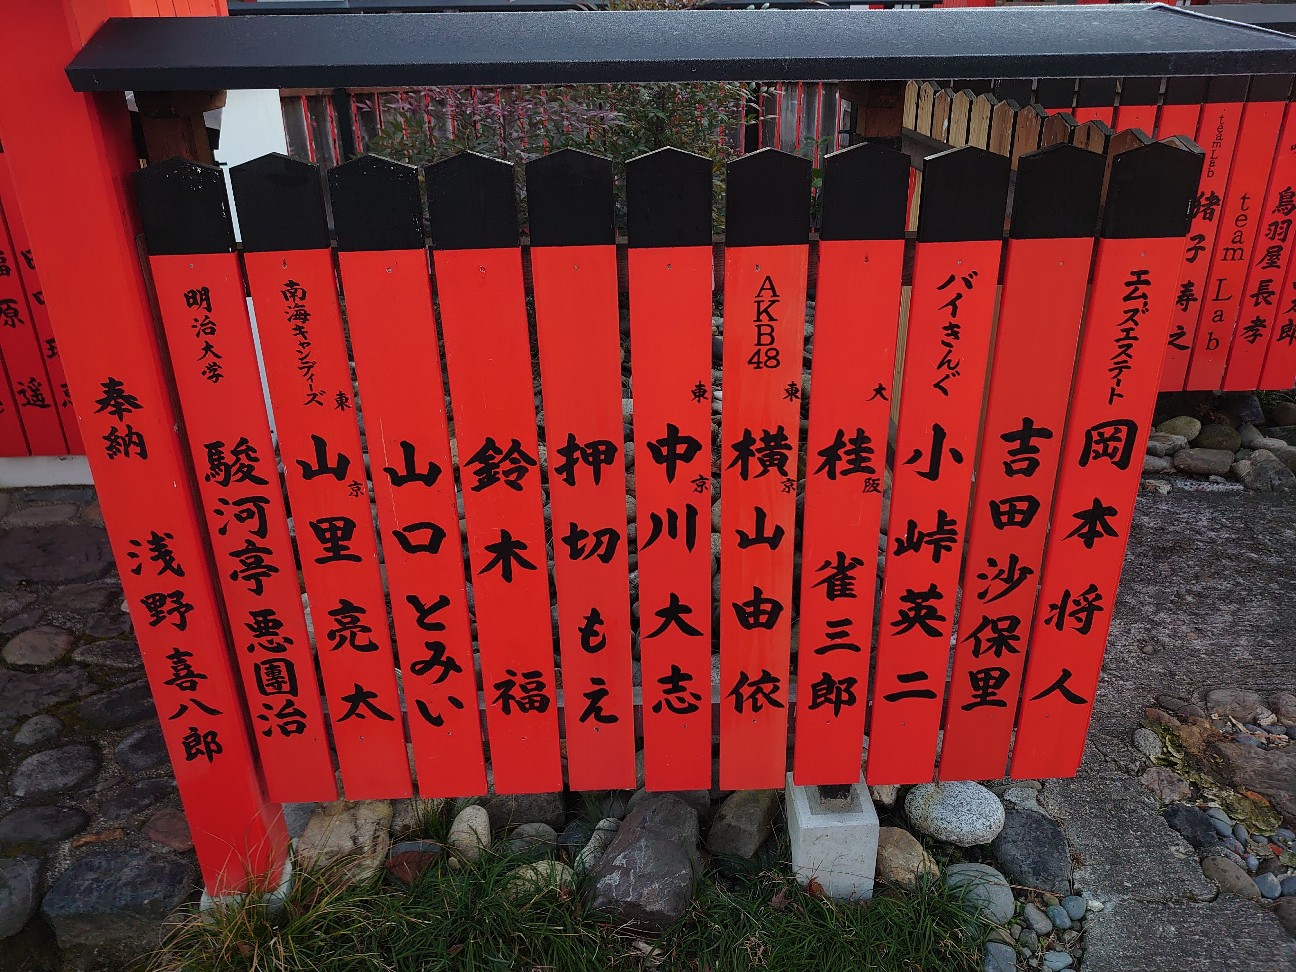 エムズエステート 岡本将人
吉田沙保里
バイきんぐ 小峠英二
大阪 桂雀三郎
AKB48 東京 横山由依
東京 中川大志
押切もえ
鈴木福
山口とみい
南海キャンディーズ 東京 山里亮太
明治大学 駿河亭悪團治
奉納 浅野喜八郎
鳥羽屋長孝
team Lab
teamLab 猪子寿之